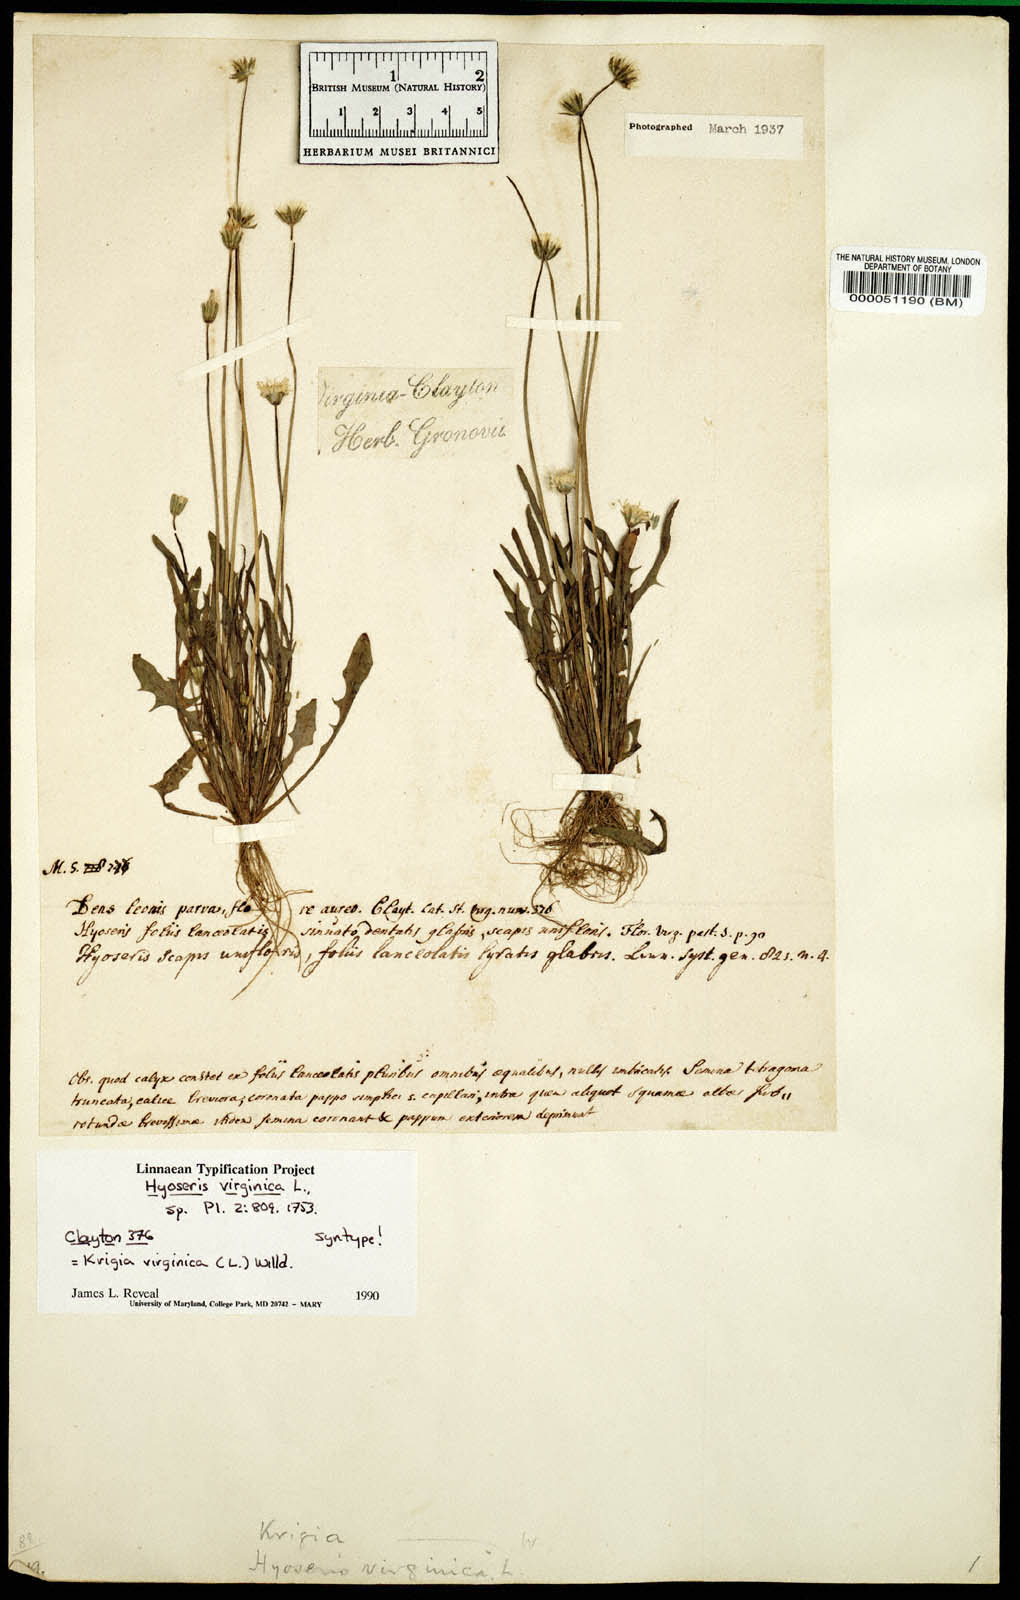 1 2
BRITISH MUSEUM (NATURAL HISTORY)
1 2 3 4 5
HERBARIUM MUSEI BRITANNICI
Photographed March 1937
THE NATURAL HISTORY MUSEUM, LONDON
DEPARTMENT OF BOTANY
000051190 (BM)
Virginia-Clayton
Herb. Gronovii
M. S.
Dens leonis parva, flo re aureo. Clayt. Cat. St. Virg. num. 376
Hyoseris foliis lanceolatis sinuato dentatis glabris, scapis unifloris. Flor. Virg. pest. 3. p. 90
Hyoseris scapis unifloris, foliis lanceolatis lyratis glabris. Linn. Syst. gen. 823. n. 4.
Obs. quod calyx constet ex foliis lanceolatis pluribus omnibus æqualibus, nullis imbricatis. Semina tetragona
truncata, calice breviora, coronata pappo simplici s. capillari, intra quem aliquot squamæ albæ
rotundæ brevissimæ itidem semina coronant & pappum exteriorem deprimunt
Linnaean Typification Project
Hyoseris virginica L.,
sp. Pl. 2: 809. 1753.
Clayton 376 syntype!
= Krigia virginica (L.) Willd.
James L. Reveal 1990
University of Maryland, College Park, MD 20742 – MARY
Krigia ——— W
Hyoseris virginica. L.
1